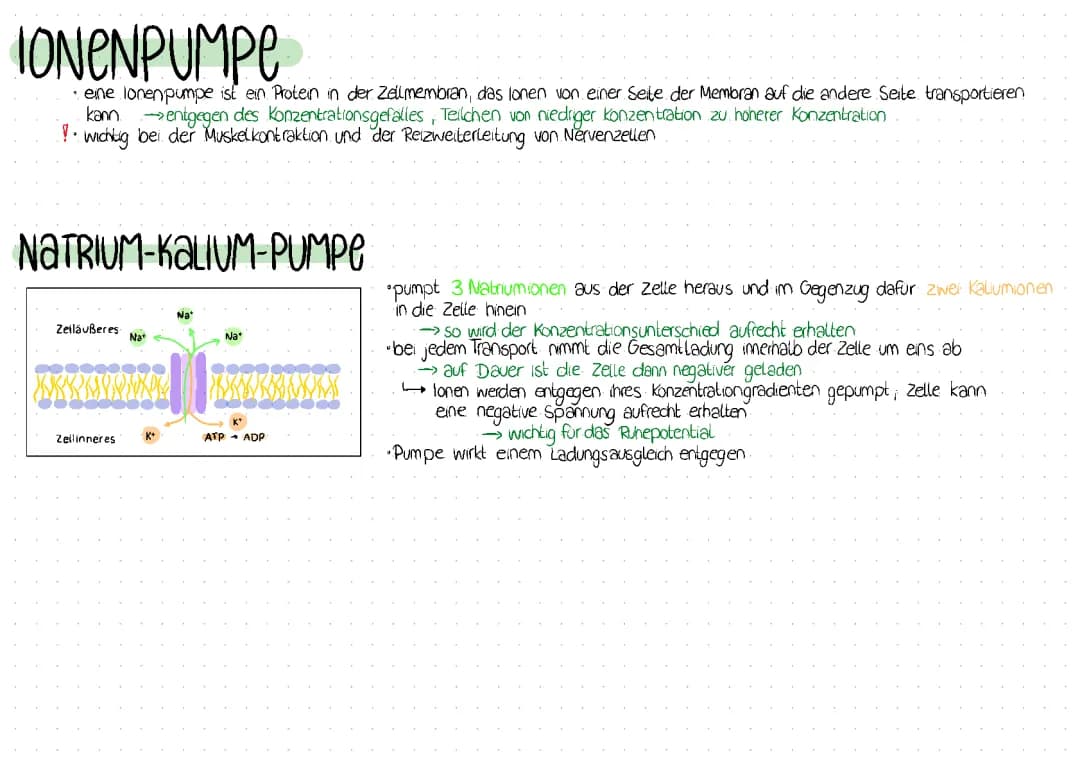 IONENPUMPE
· eine Ionenpumpe ist ein Protein in der Zellmembran, das Ionen von einer Seite der Membran auf die andere Seite transportieren
kann → entgegen des Konzentrationsgefälles, Teilchen von niedriger Konzentration zu höherer Konzentration
! · wichtig bei der Muskelkontraktion und der Reizweiterleitung von Nervenzellen
NATRIUM-KALIUM-PUMPE
Zelläußeres
Na⁺
Na⁺
Na⁺
Zellinneres
K⁺
K⁺
ATP → ADP
· pumpt 3 Natriumionen aus der Zelle heraus und im Gegenzug dafür zwei Kaliumionen
in die Zelle hinein
→ so wird der Konzentrationsunterschied aufrecht erhalten
· bei jedem Transport nimmt die Gesamtladung innerhalb der Zelle um eins ab
→ auf Dauer ist die Zelle dann negativer geladen
↳ Ionen werden entgegen ihres Konzentrationgradienten gepumpt; Zelle kann
eine negative Spannung aufrecht erhalten
→ wichtig für das Ruhepotential
· Pumpe wirkt einem Ladungsausgleich entgegen